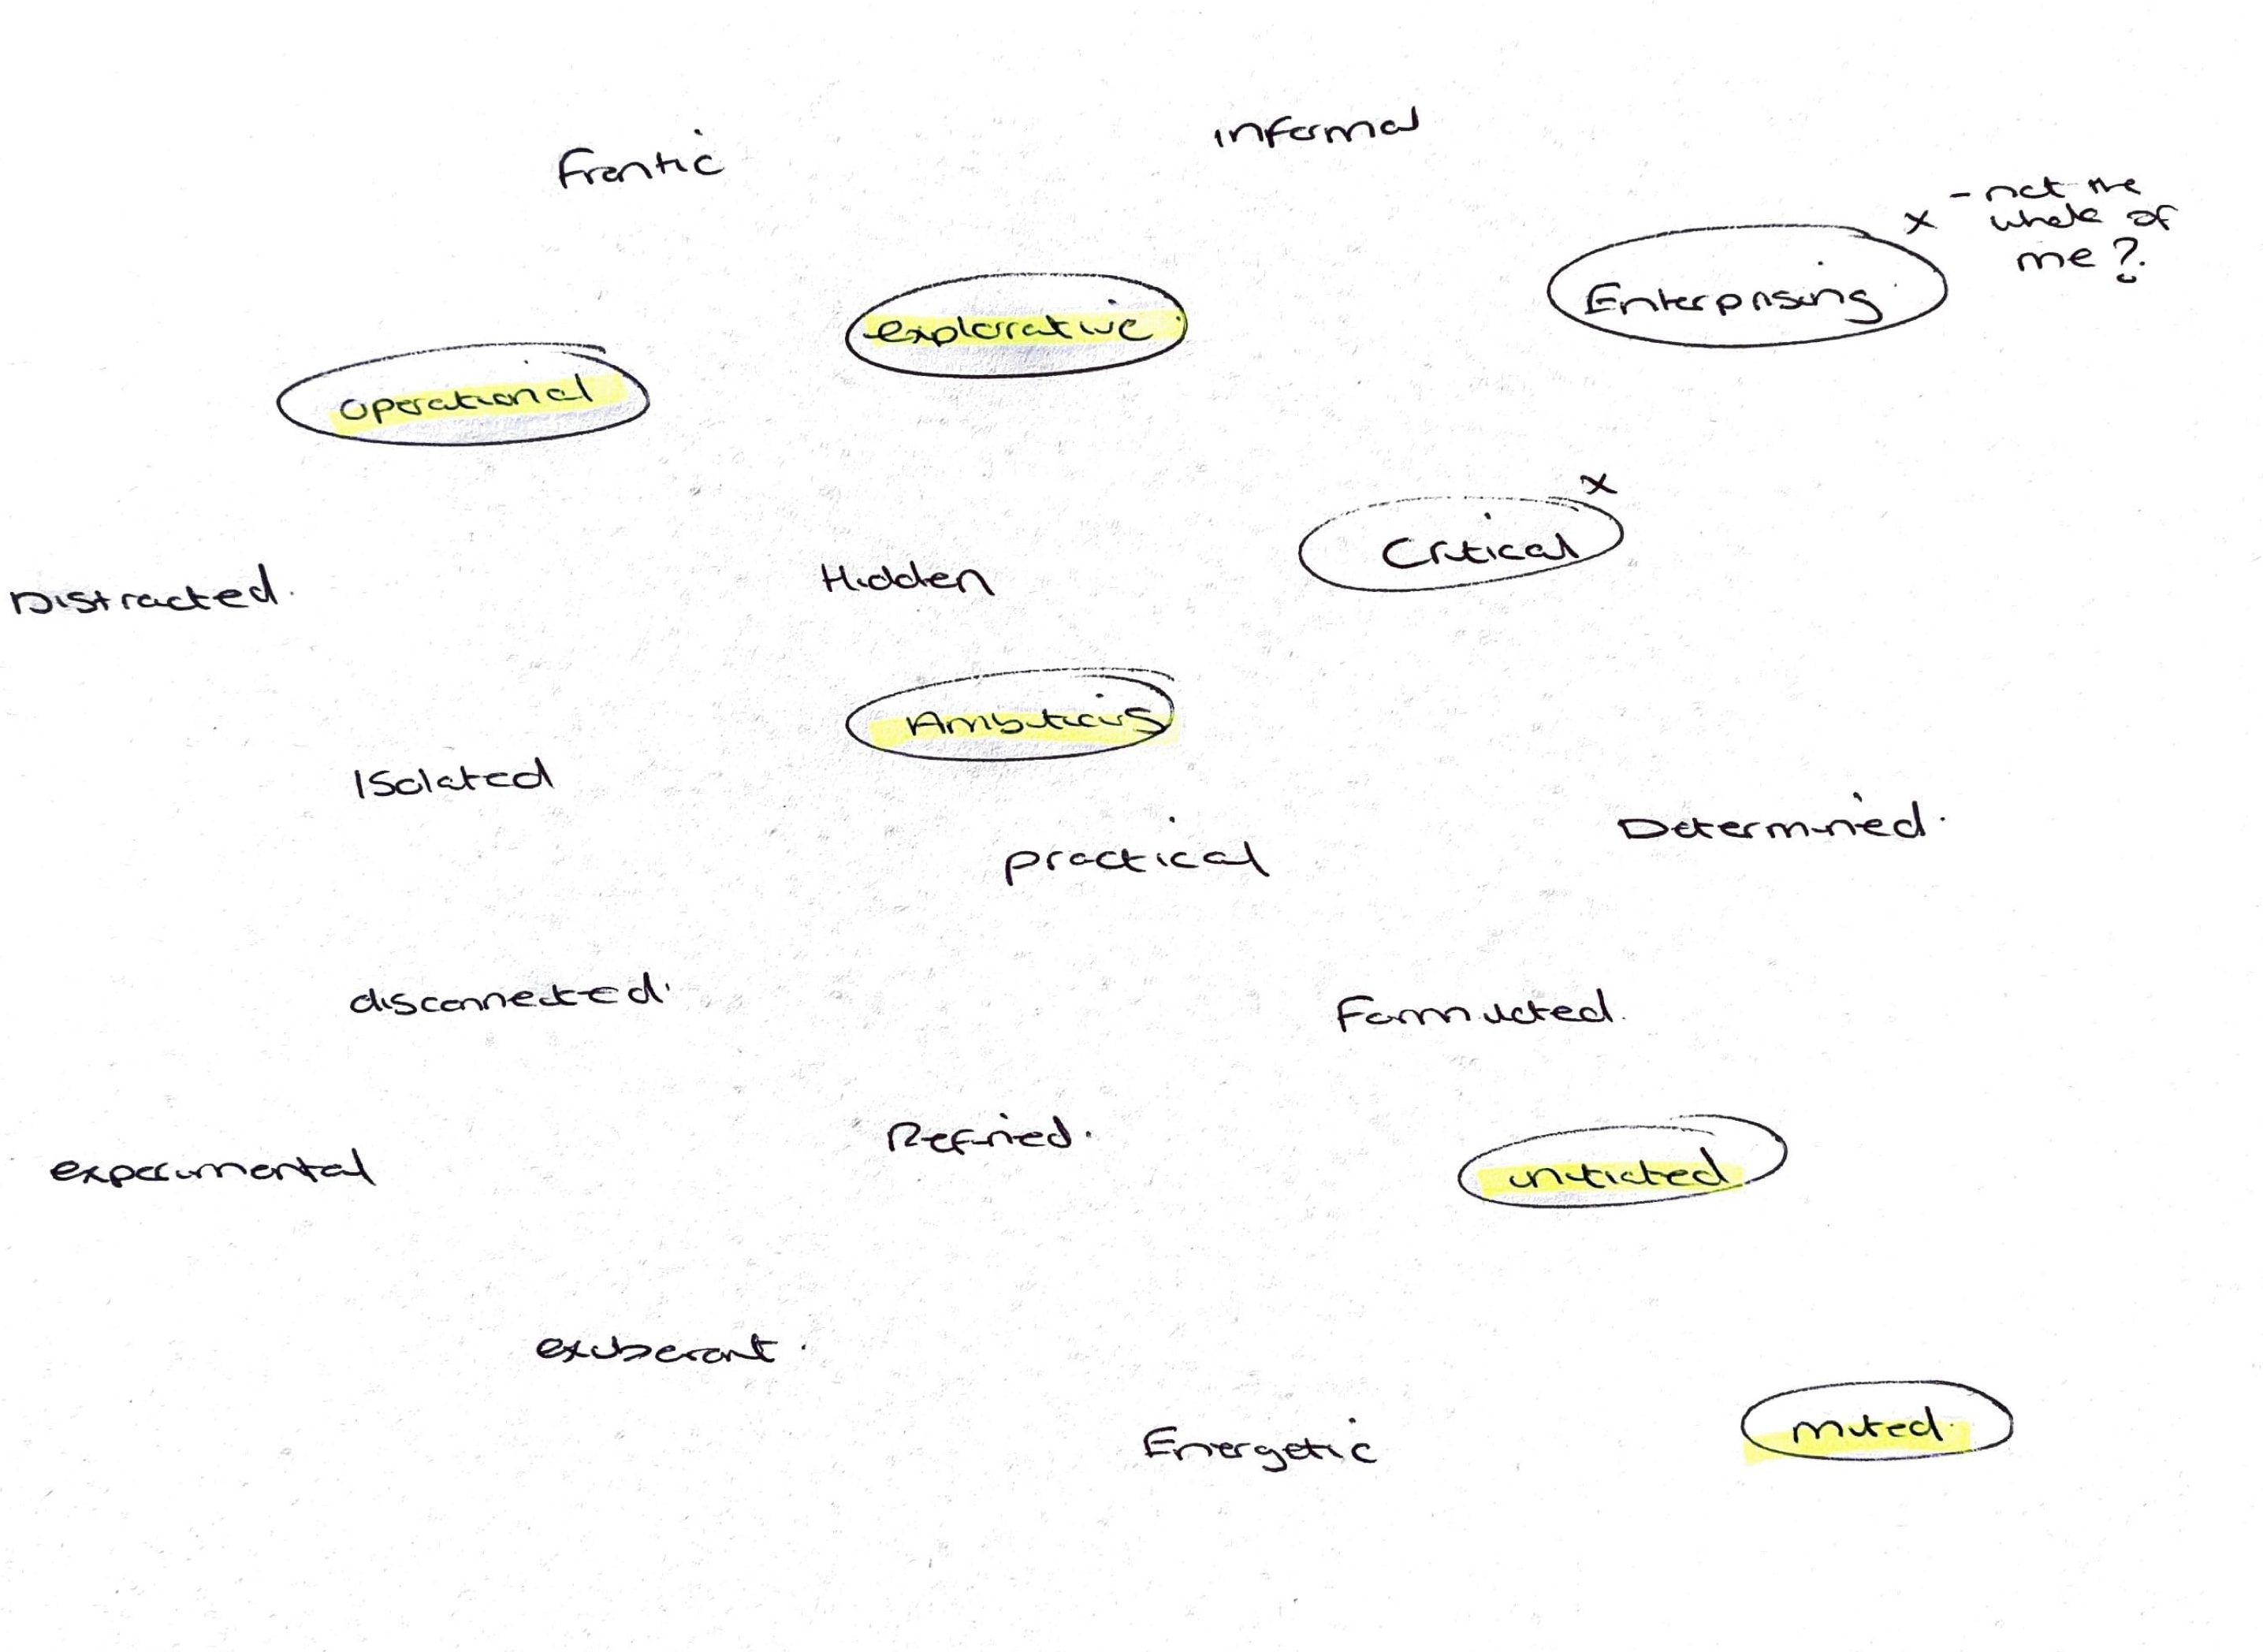 Frantic
informal
x - not the
whole of
me?
Enterprising
explorative
operational
x
Critical
Hidden
Distracted.
Ambitious
Isolated
Determined.
practical
disconnected.
Formulated.
Refined.
experimental
initiated
exuberant.
Energetic
muted.